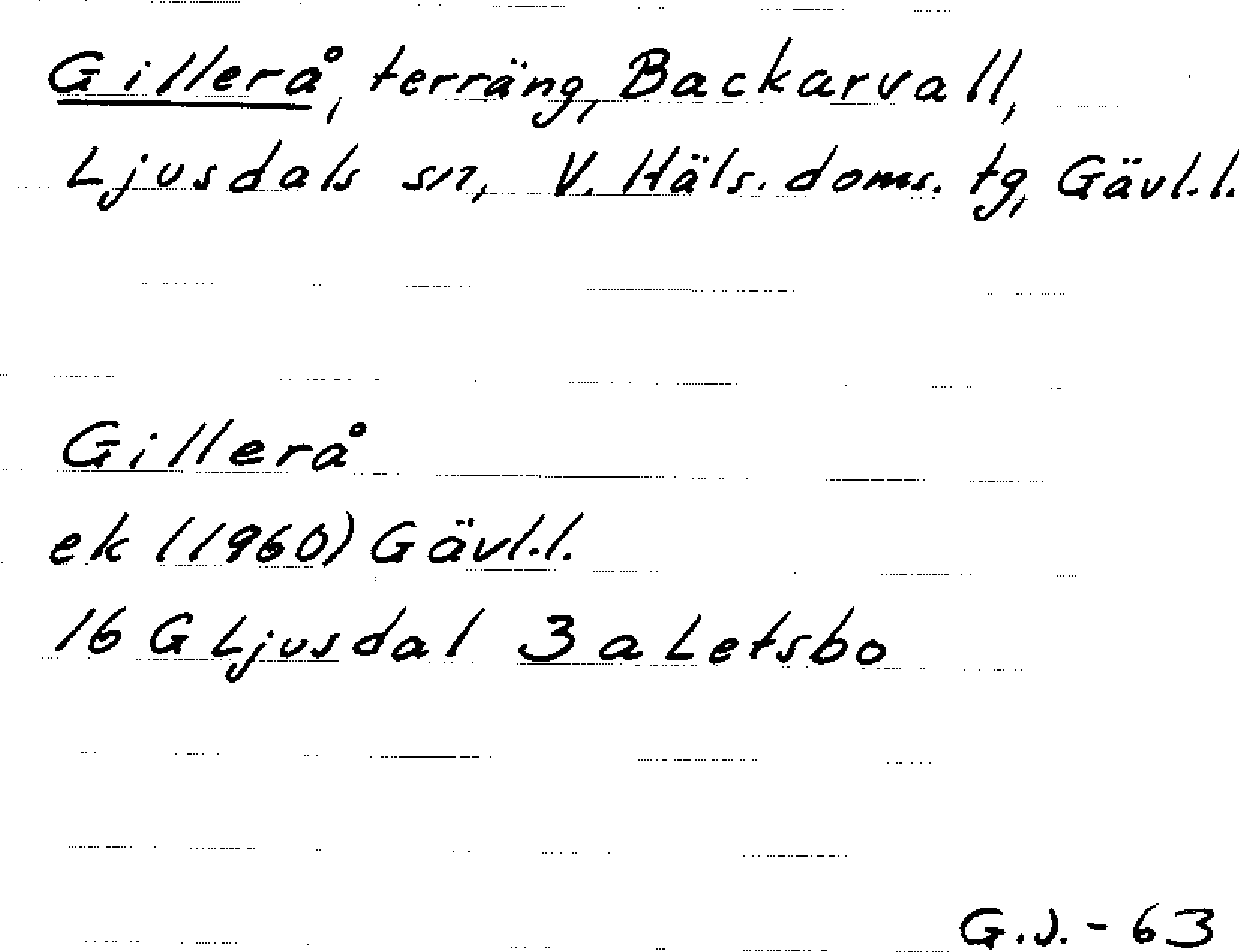 Gillerå, terräng, Backarvall,
Ljusdals sn, V. Häls. doms. tg, Gävl.l.
Gillerå
ek (1960) Gävl.l.
16 G Ljusdal 3 a Letsbo
G.J. - 63